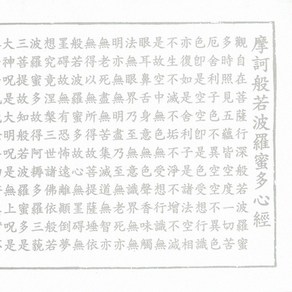 摩訶般若波羅蜜多心經
觀自在菩薩行深般若波羅蜜
多時照見五蘊皆空度一切苦
厄舍利子色不異空空不異色
色即是空空即是色受想行識
亦復如是舍利子是諸法空相
不生不滅不垢不淨不增不減
是故空中無色無受想行識無
眼耳鼻舌身意無色聲香味觸
法無眼界乃至無意識界無無
明亦無無明盡乃至無老死亦
無老死盡無苦集滅道無智亦
無得以無所得故菩提薩埵依
般若波羅蜜多故心無罣礙無
罣礙故無有恐怖遠離顛倒夢
想究竟涅槃三世諸佛依般若
波羅蜜多故得阿耨多羅三藐
三菩提故知般若波羅蜜多是
大神呪是大明呪是無上呪是